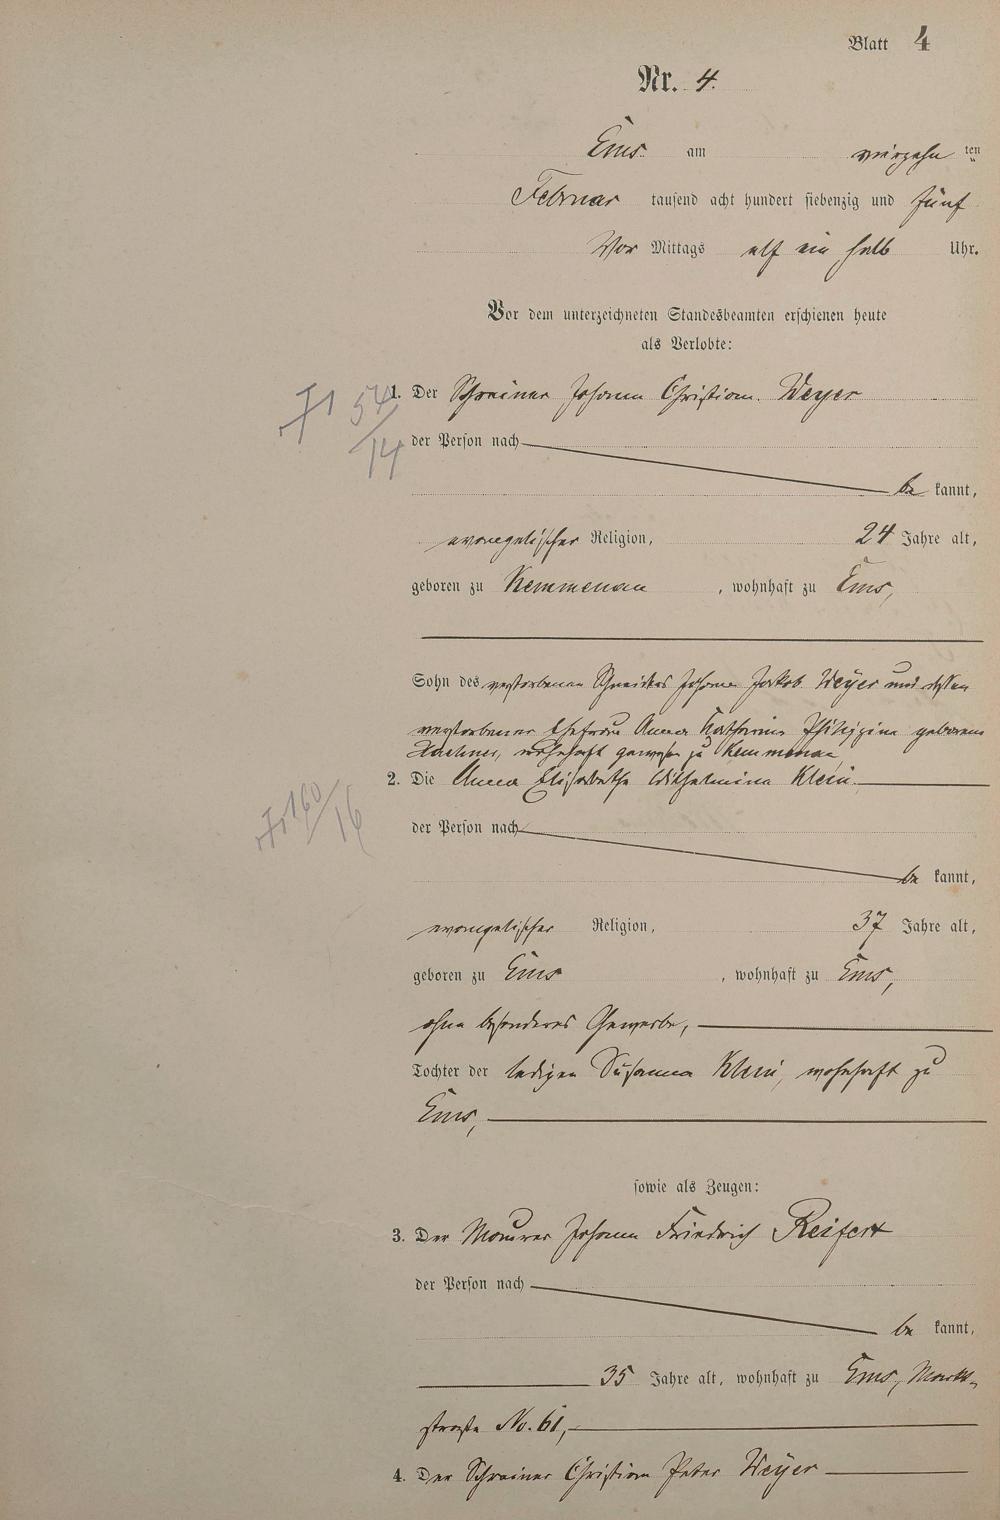 Blatt 4
Nr. 4.
Ems am vierzehn ten
Februar tausend acht hundert siebenzig und fünf
Vor Mittags elf ein halb Uhr.
Vor dem unterzeichneten Standesbeamten erschienen heute
als Verlobte:
1. Der Schreiner Johann Christian Weyer
54/14
der Person nach
be kannt,
evangelischer Religion, 24 Jahre alt,
geboren zu Kemmenau, wohnhaft zu Ems,
Sohn des verstorbenen Johann Jakob Weyer und dessen
verstorbener Ehefrau Anna Katharine Philippine geborene
wohnhaft gewesen zu Kemmenau
2. Die Anna Elisabethe Wilhelmina Klein.
160/16
der Person nach
be kannt,
evangelischer Religion, 37 Jahre alt,
geboren zu Ems, wohnhaft zu Ems,
ohne besonderes Gewerbe,
Tochter der ledigen Susanna Klein, wohnhaft zu
Ems,
sowie als Zeugen:
3. Der Maurer Johann Friedrich Reifert
der Person nach
be kannt,
35 Jahre alt, wohnhaft zu Ems, Markt-
straße No. 61,
4. Der Schreiner Christian Peter Weyer